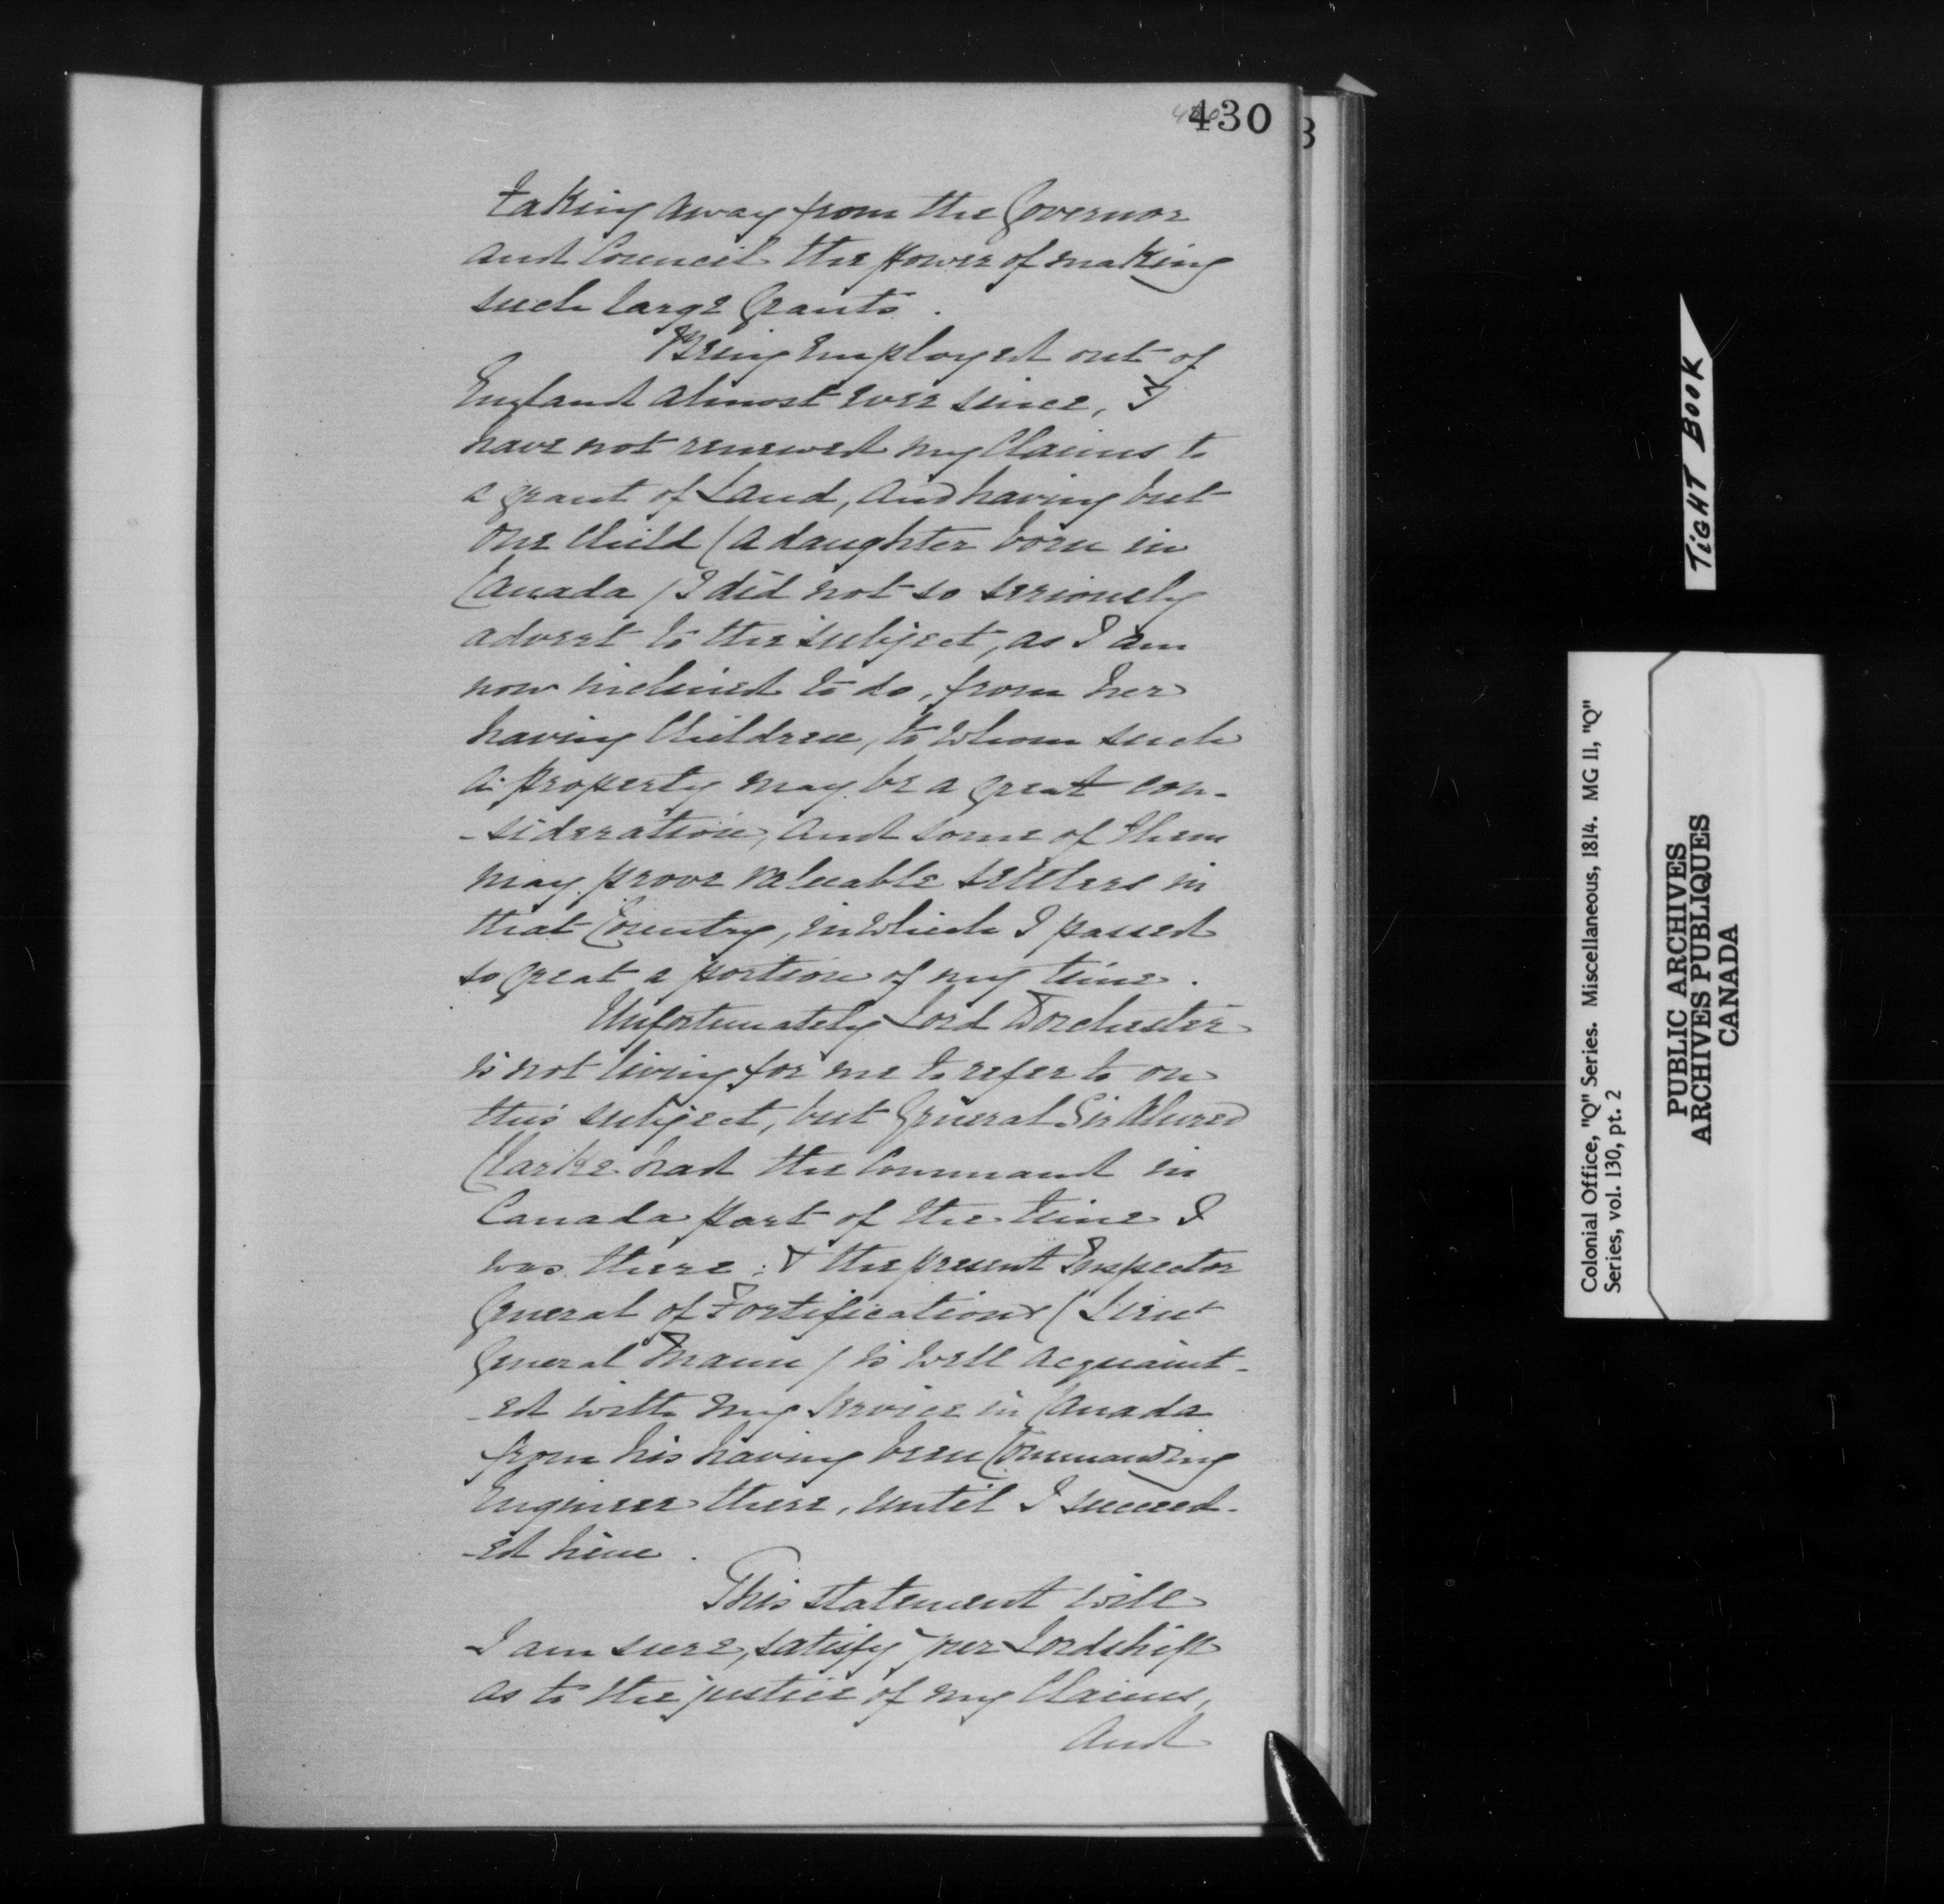 430
taking away from the Governor
and Council the power of making
such large Grants.
Being employed out of
England almost ever since, I
have not renewed my Claims to
a grant of Land, and having but
one Child (a daughter born in
Canada) I did not so seriously
advert to the subject, as I am
now inclined to do, from her
having Children, to whom such
a property may be a great con-
-sideration, and some of them
may prove valuable settlers in
that Country, in which I passed
so great a portion of my time.
Unfortunately Lord Dorchester
is not living for me to refer to on
this subject, but General Sir Alured
Clarke had the Command in
Canada part of the time I
was there; & the present Inspector
General of Fortifications (Lieut
General Mann) is well acquaint-
-ed with my Service in Canada
from his having been Commanding
Engineer there, until I succeed-
-ed him.
This statement will
I am sure, satisfy your Lordship
as to the justice of my Claims,
and
TIGHT BOOK
Colonial Office, "Q" Series. Miscellaneous, 1814. MG 11, "Q"
Series, vol. 130, pt. 2
PUBLIC ARCHIVES
ARCHIVES PUBLIQUES
CANADA